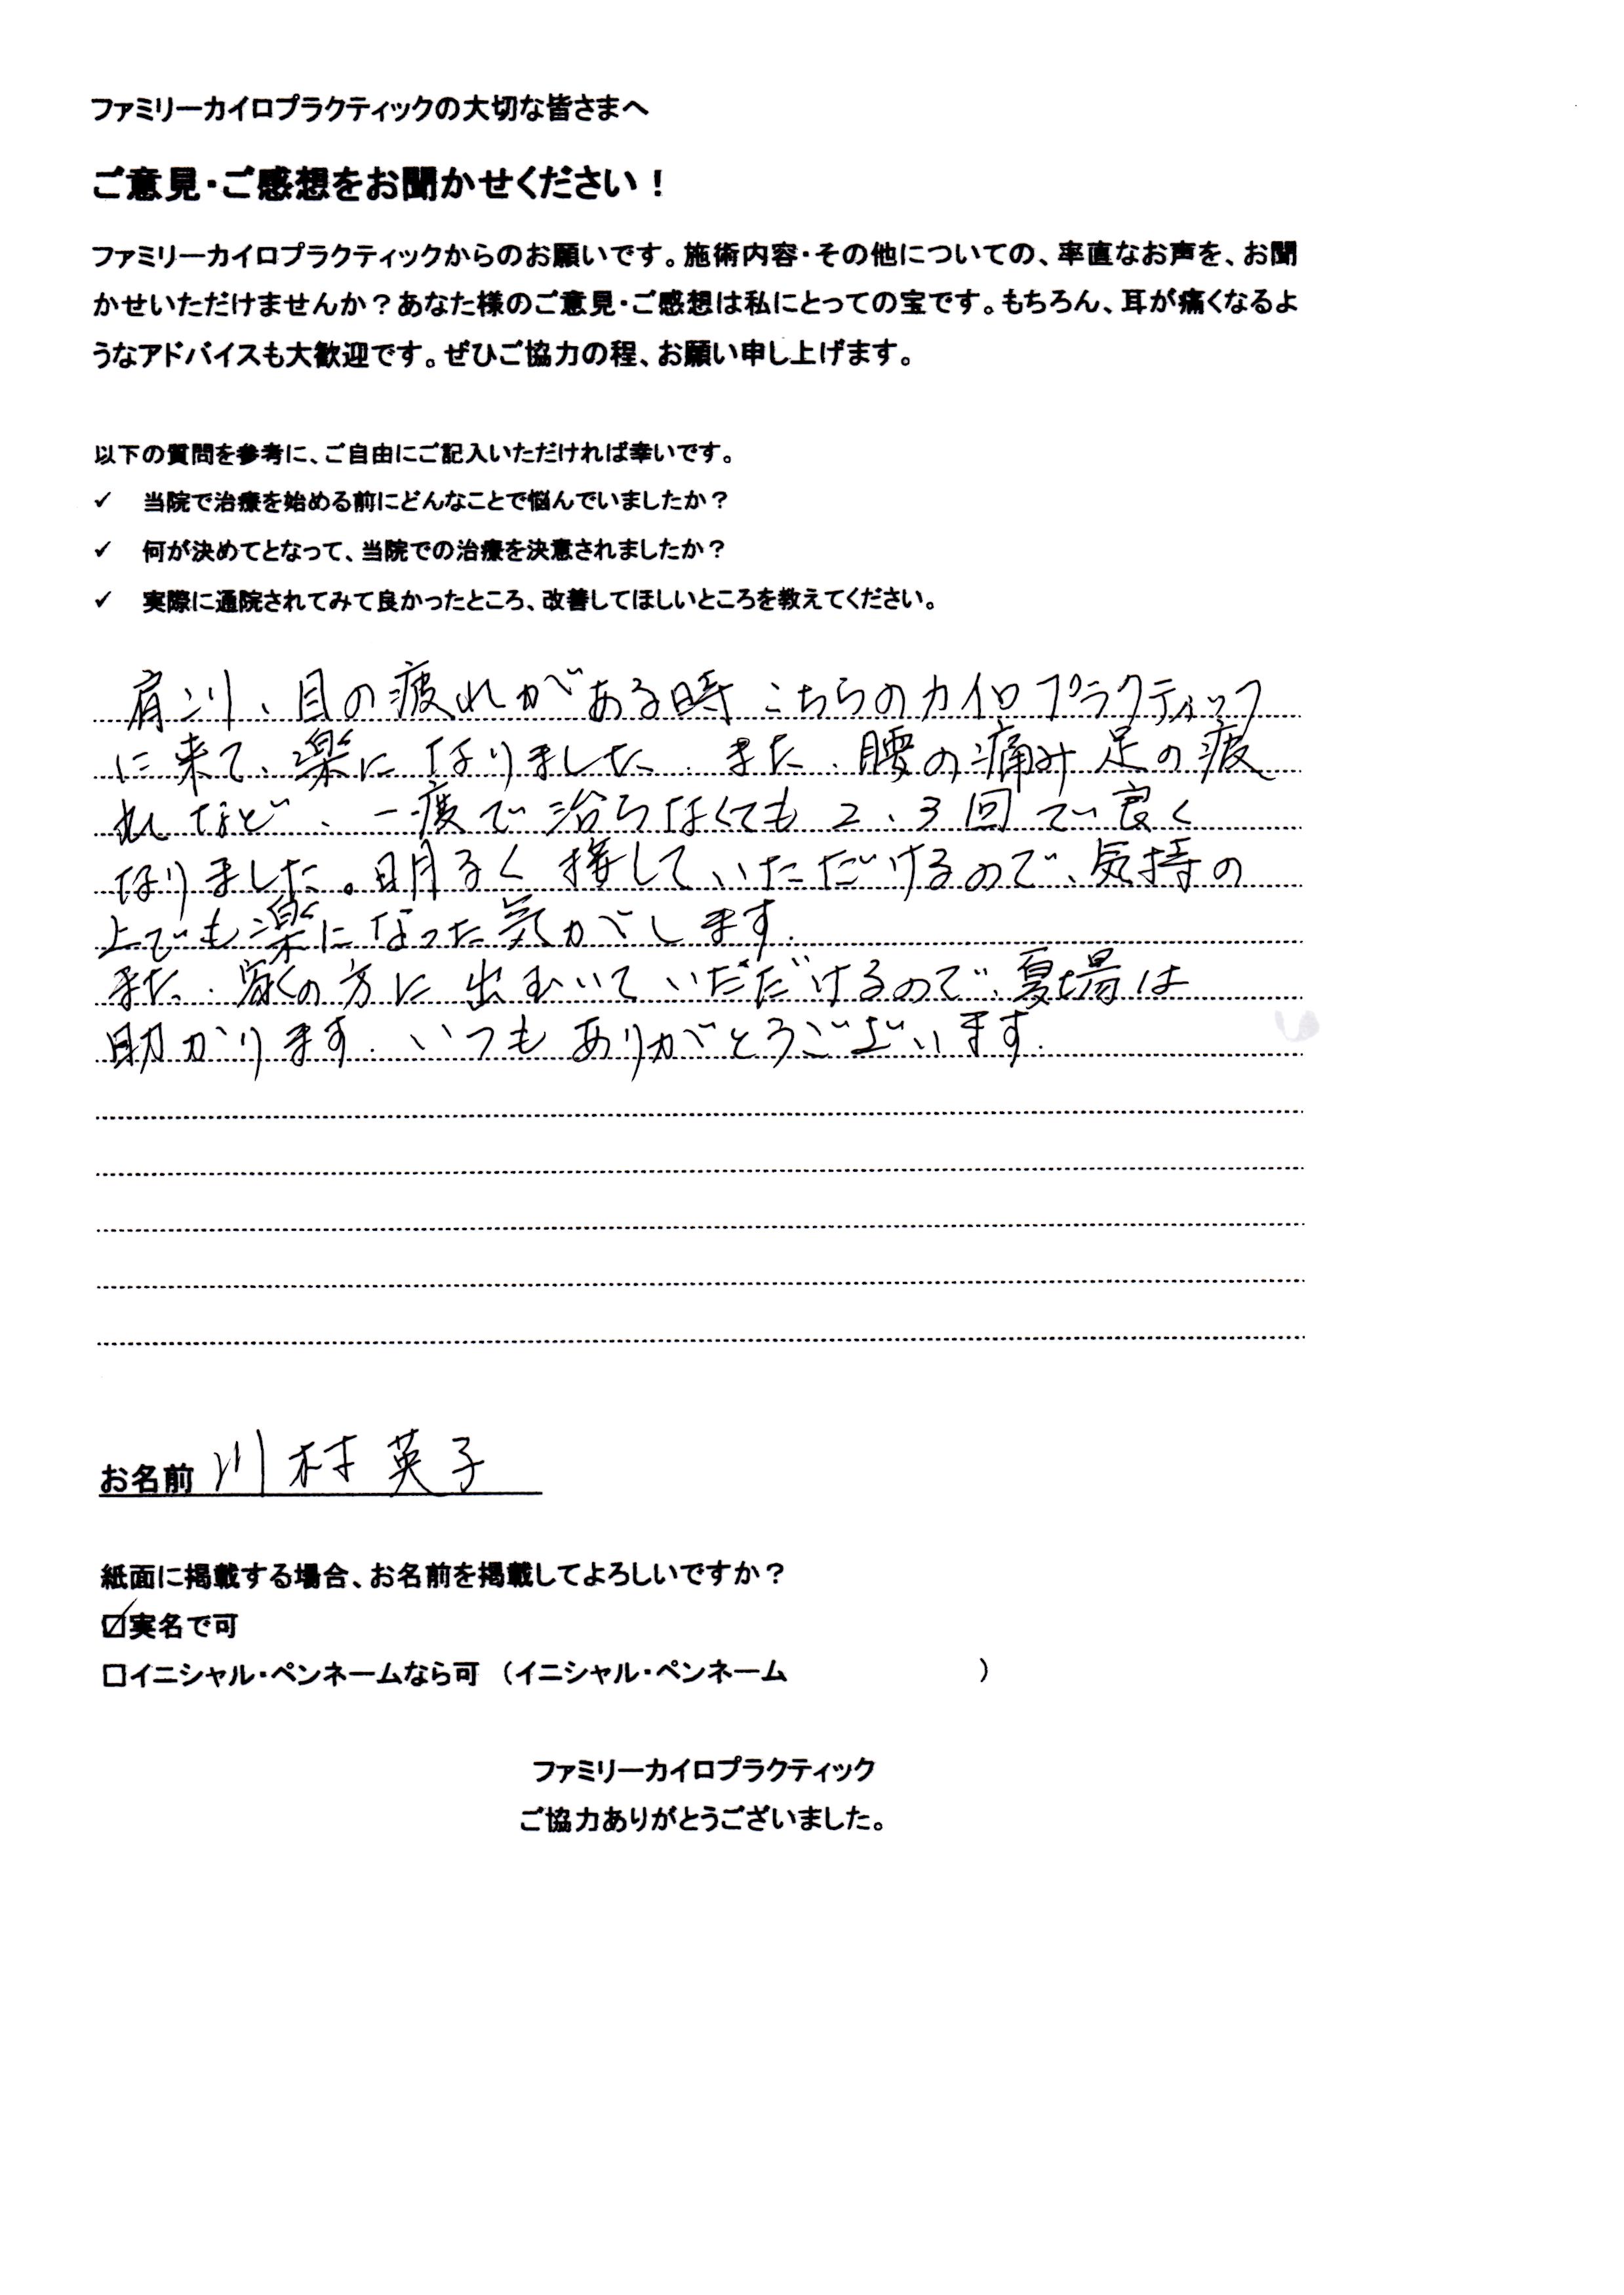 ファミリーカイロプラクティックの大切な皆さまへ
ご意見・ご感想をお聞かせください！
ファミリーカイロプラクティックからのお願いです。施術内容・その他についての、率直なお声を、お聞
かせいただけませんか？あなた様のご意見・ご感想は私にとっての宝です。もちろん、耳が痛くなるよ
うなアドバイスも大歓迎です。ぜひご協力の程、お願い申し上げます。
以下の質問を参考に、ご自由にご記入いただければ幸いです。
✓ 当院で治療を始める前にどんなことで悩んでいましたか？
✓ 何が決めてとなって、当院での治療を決意されましたか？
✓ 実際に通院されてみて良かったところ、改善してほしいところを教えてください。
肩コリ、目の疲れがある時こちらのカイロプラクティック
に来て、楽になりました。また、腰の痛み足の疲
れなど、一度で治らなくても2、3回で良く
なりました。明るく接していただけるので、気持の
上でも楽になった気がします。
また、家の方に出むいていただけるので、夏場は
助かります。いつもありがとうございます。
お名前 川村英子
紙面に掲載する場合、お名前を掲載してよろしいですか？
☑実名で可
□イニシャル・ペンネームなら可 （イニシャル・ペンネーム ）
ファミリーカイロプラクティック
ご協力ありがとうございました。